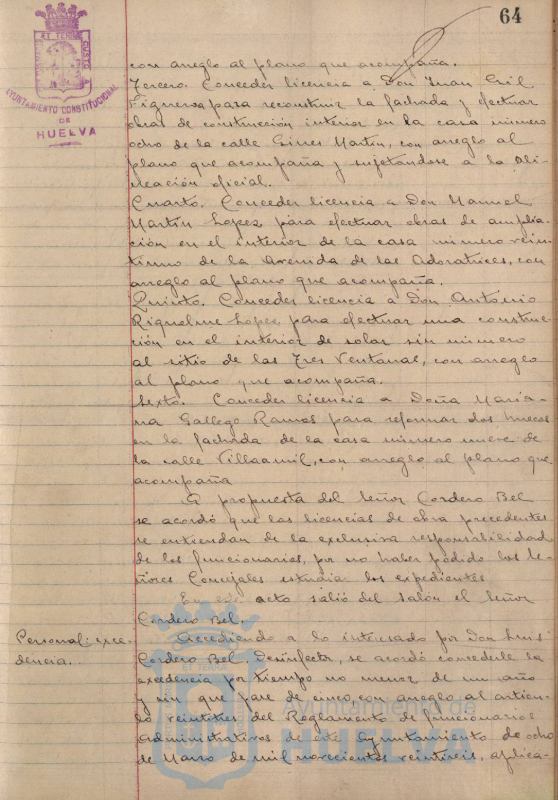 64
AYUNTAMIENTO CONSTITUCIONAL
DE
HUELVA
con arreglo al plano que acompaña.
Tercero. Conceder licencia a Don Juan Gil
Figueroa para reconstruir la fachada y efectuar
obras de construcción interior en la casa número
ocho de la calle Gines Martin, con arreglo al
plano que acompaña y sujetandose a la ali-
neación oficial.
Cuarto. Conceder licencia a Don Manuel
Martin Lopez para efectuar obras de amplia-
ción en el interior de la casa número vein
tiuno de la Avenida de las Adoratrices, con
arreglo al plano que acompaña.
Quinto. Conceder licencia a Don Antonio
Riquelme Lopez para efectuar una construc-
ción en el interior de solar sin número
al sitio de las Tres Ventanas, con arreglo
al plano que acompaña.
Sexto. Conceder licencia a Doña Maria-
na Gallego Ramos para reformar dos huecos
en la fachada de la casa número nueve de
la calle Villaamil, con arreglo al plano que
acompaña
A propuesta del Señor Cordero Bel
se acordó que las licencias de obra precedentes
se entiendan de la exclusiva responsabilidad
de los funcionarios, por no haber podido los Se-
ñores Concejales estudiar los expedientes
En este acto salió del salón el Señor
Cordero Bel.
Personal: exce
dencia.
Accediendo a lo interesado por Don Luis
Cordero Bel, Desinfector, se acordó concederle la
excedencia por tiempo no menor de un año
y sin que pase de cinco, con arreglo al articu-
lo veintitres del Reglamento de funcionarios
Administrativos de este Ayuntamiento de ocho
de Marzo de mil novecientos veintiseis, aplica-
Ayuntamiento de
HUELVA